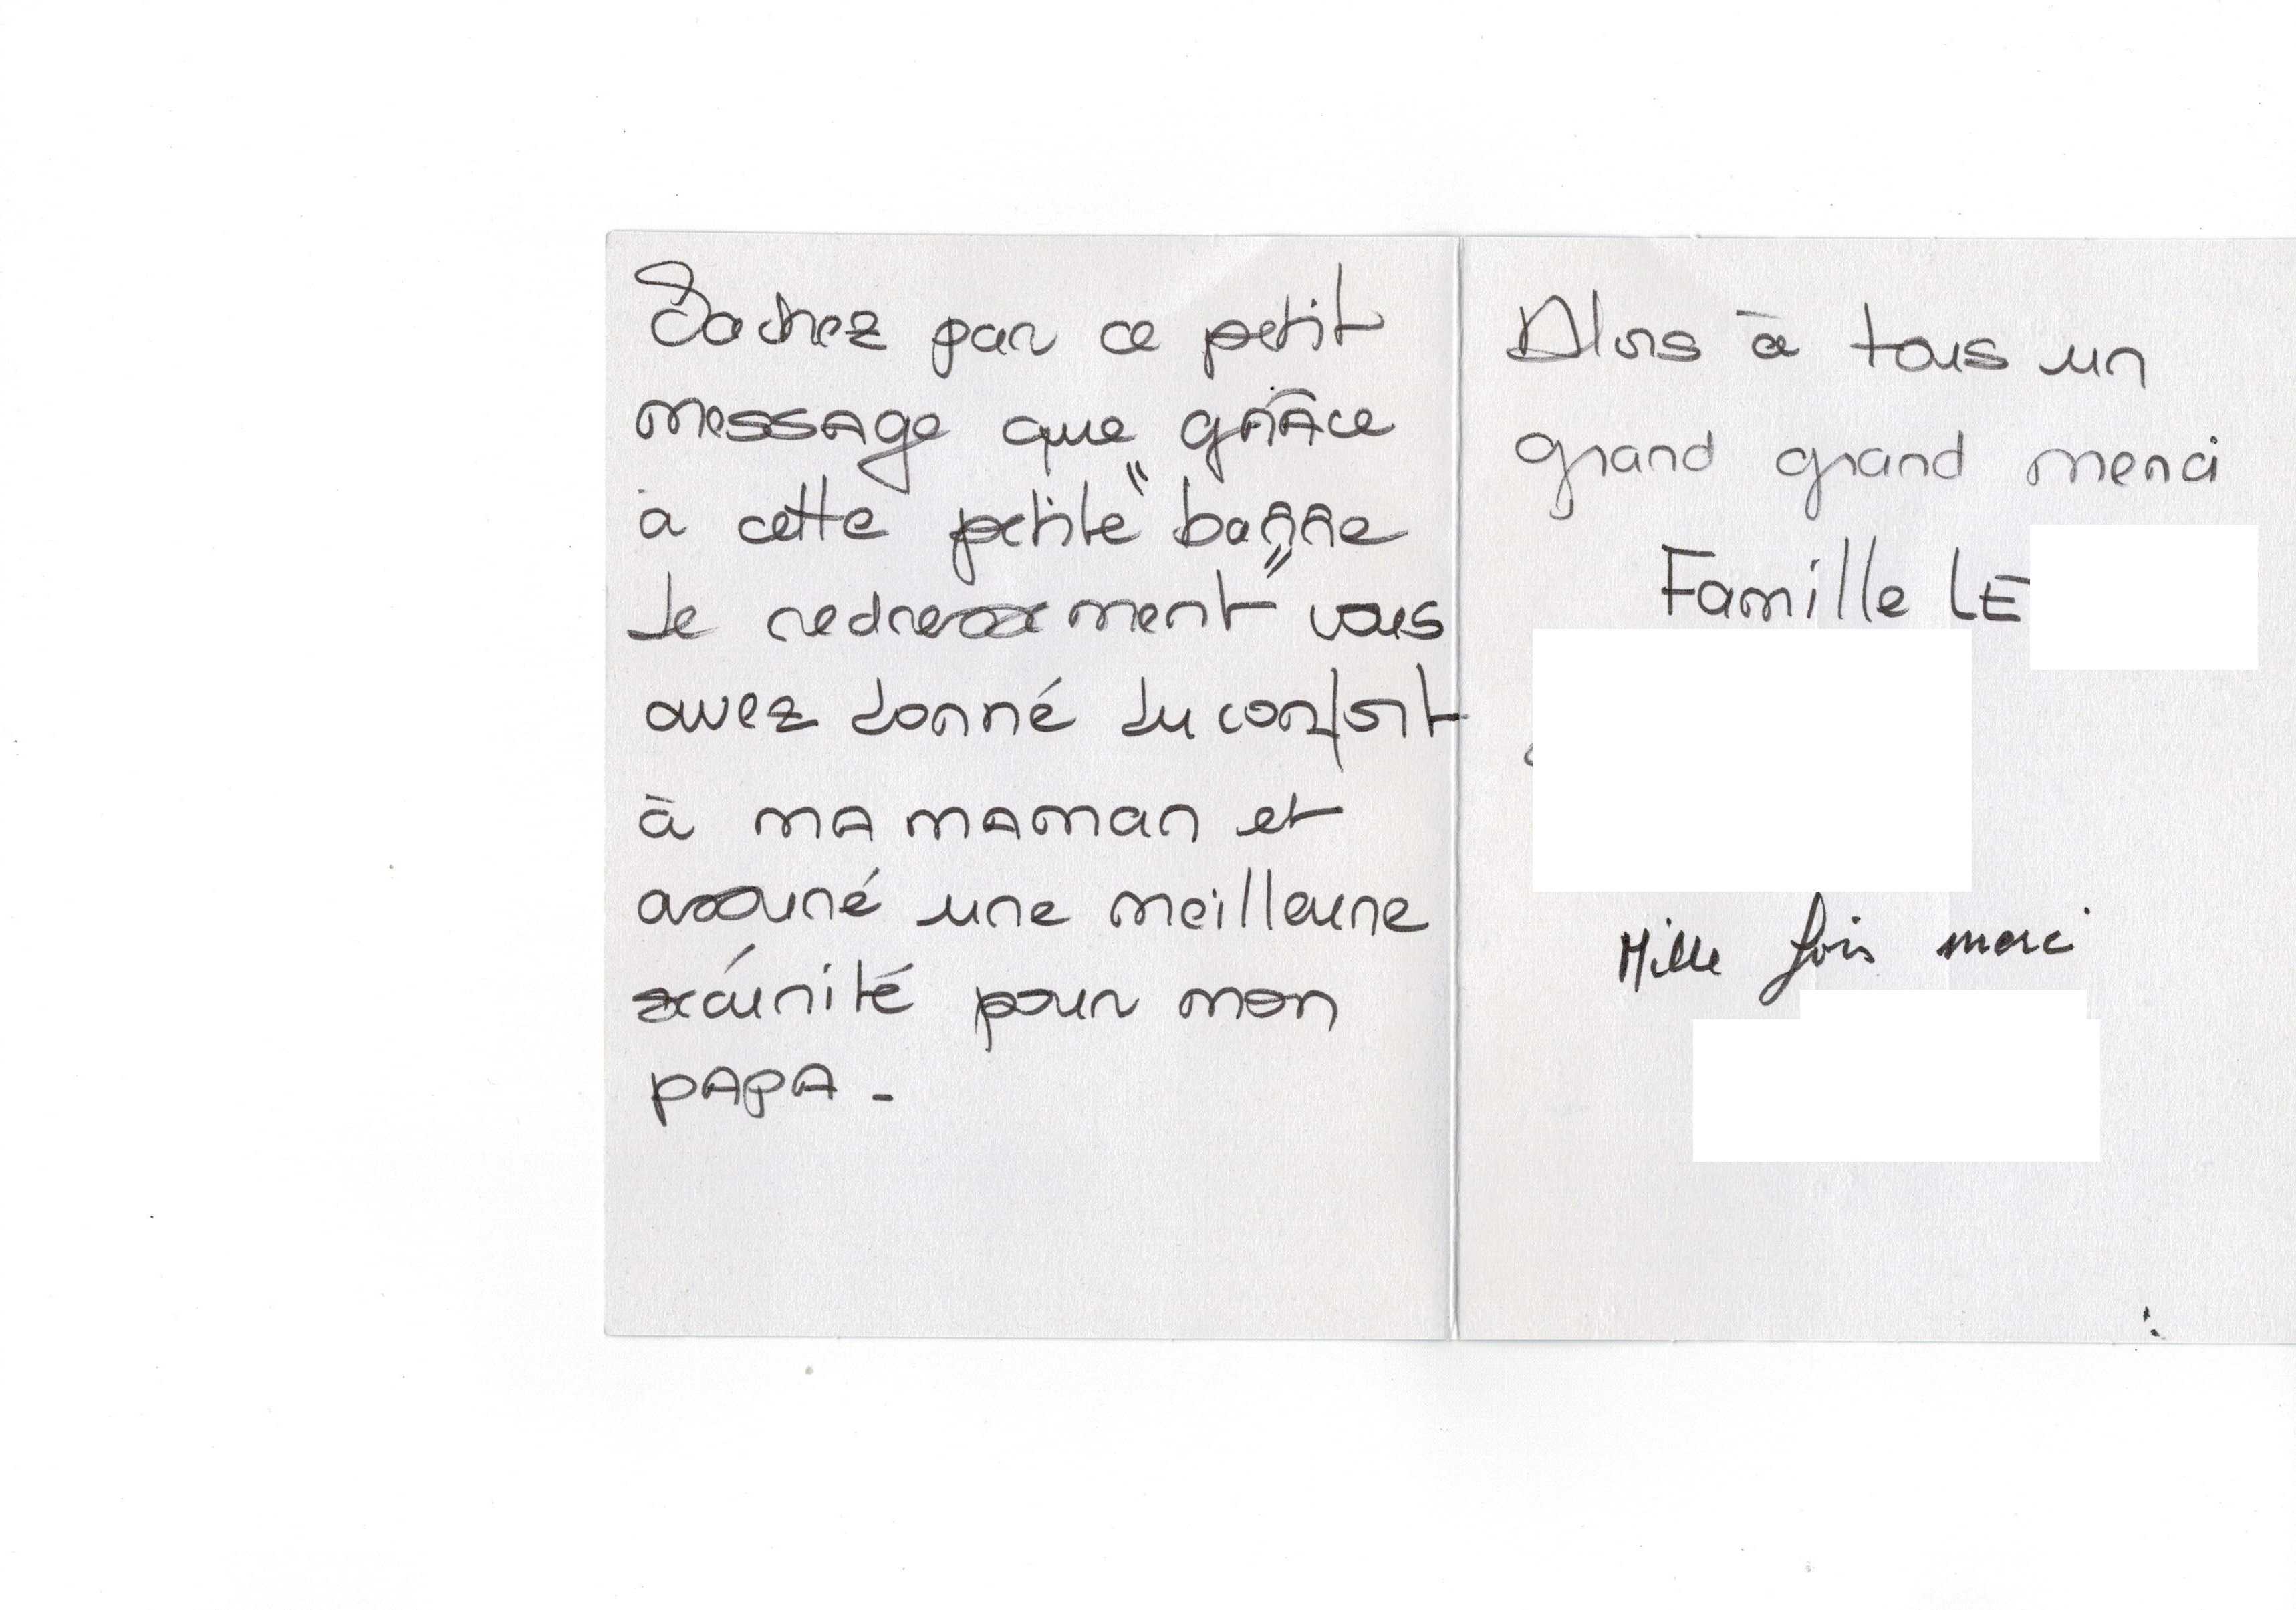 Sachez par ce petit
message que grâce
à cette petite "barre
de redressement" vous
avez donné du confort
à ma maman et
assuré une meilleure
sérénité pour mon
papa.
Alors à tous un
grand grand merci
Famille LE
Mille fois merci